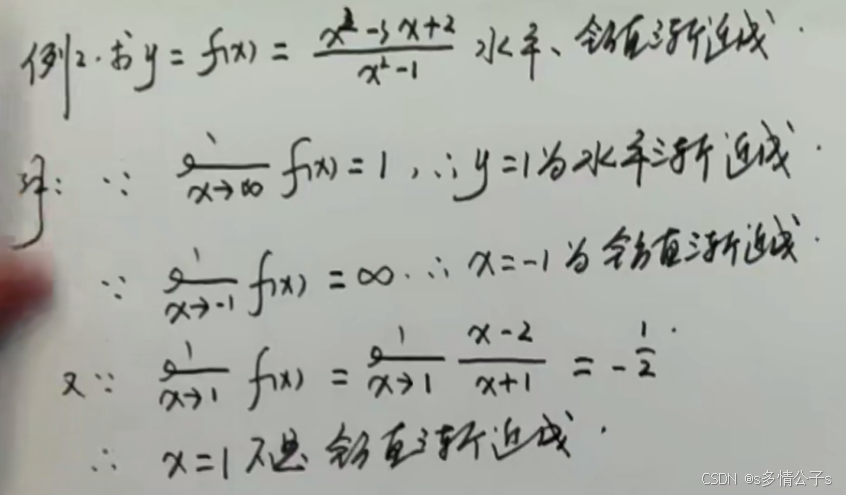 例2. 求 y = f(x) = (x²-3x+2)/(x²-1) 水平、铅直渐近线.
解: ∵ lim x→∞ f(x) = 1, ∴ y=1为水平渐近线.
∵ lim x→-1 f(x) = ∞. ∴ x=-1为铅直渐近线.
又∵ lim x→1 f(x) = lim x→1 (x-2)/(x+1) = -1/2.
∴ x=1不是铅直渐近线.
CSDN @s多情公子s